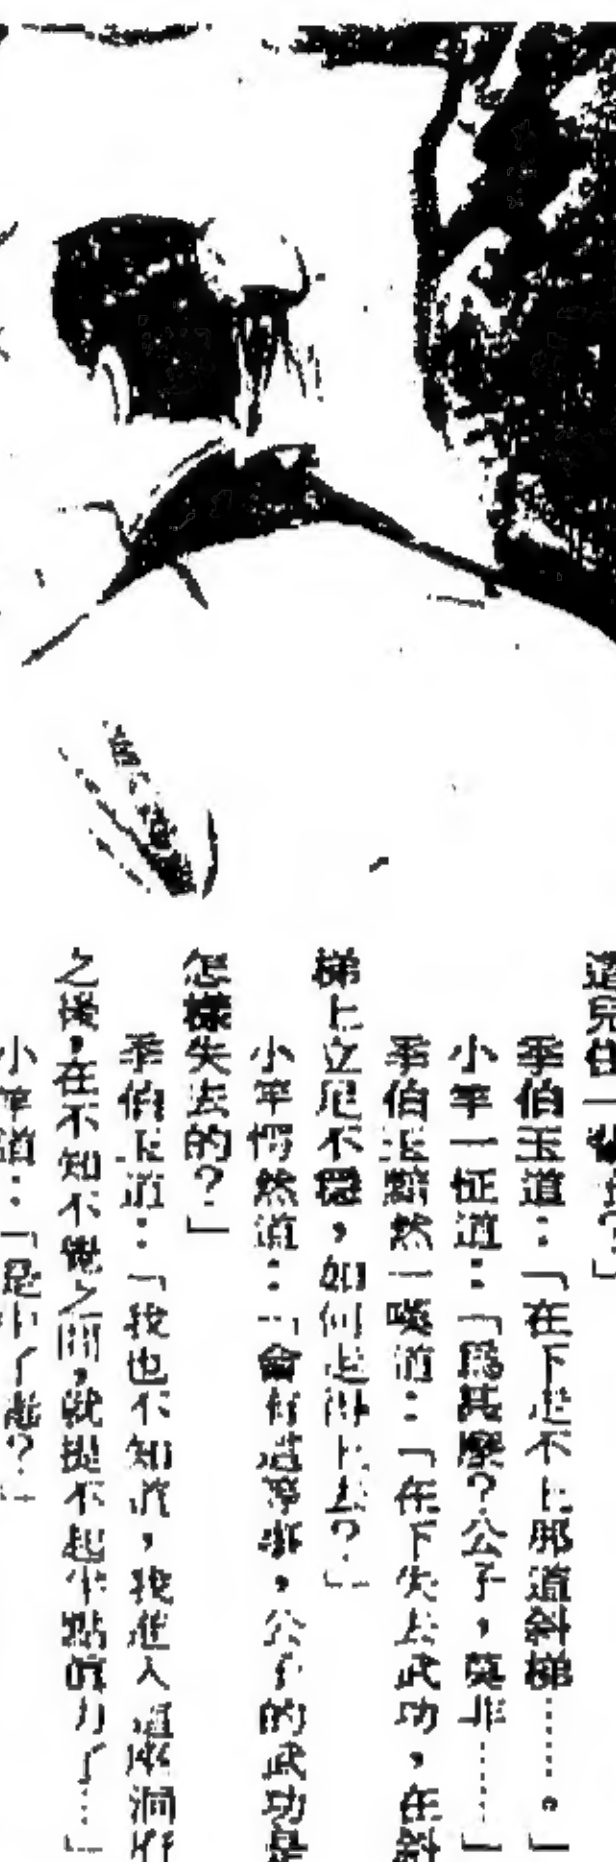 這兒住一
季伯玉道：「在下走不上那道斜梯……。」
小苹一怔道：「爲甚麼？公子，莫非……」
季伯玉黯然一嘆道：「在下失去武功，在斜
梯上立足不穩，如何走得上去？」
小苹愕然道：「會有這等事，公子的武功是
怎樣失去的？」
季伯玉道：「我也不知道，我進入這座洞府
之後，在不知不覺之間，就提不起半點眞力了…」
小苹道：「是中了毒？」